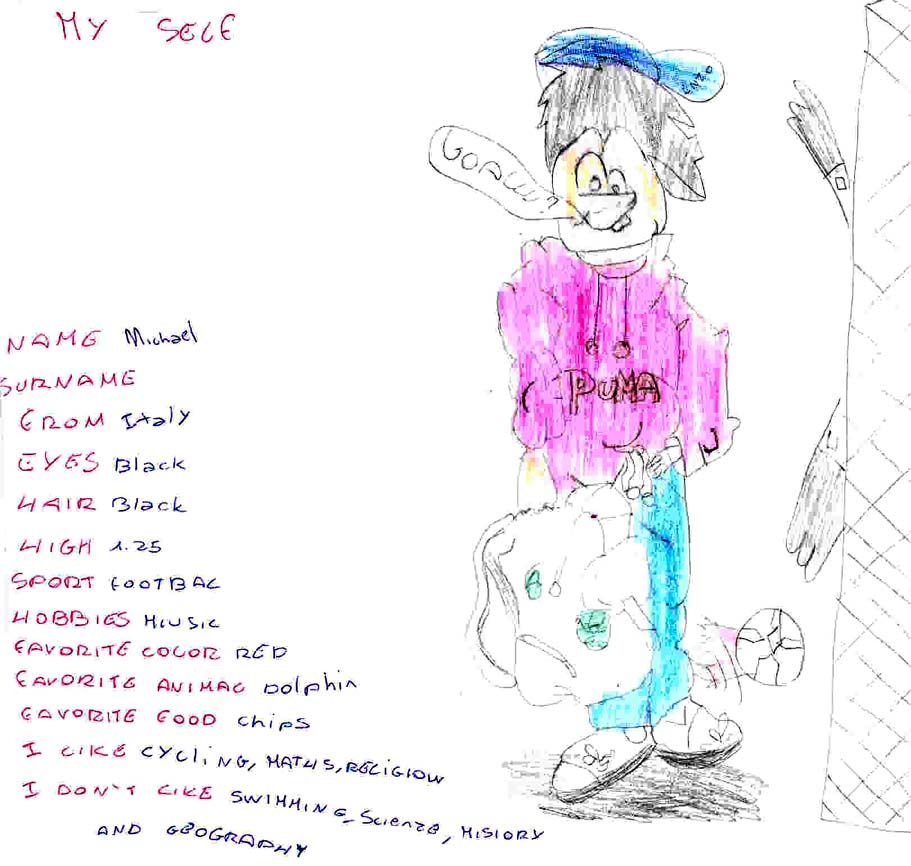 MY SELF
PUMA
NAME Michael
SURNAME
FROM Italy
EYES Black
HAIR Black
HIGH 1.25
SPORT FOOTBAL
HOBBIES MIUSIC
FAVORITE COLOR RED
FAVORITE ANIMAL Dolphin
FAVORITE FOOD chips
I LIKE CYCLING, MATHS, RELIGION
I DON'T LIKE SWIMMING, Scienze, HISTORY
AND GEOGRAPHY